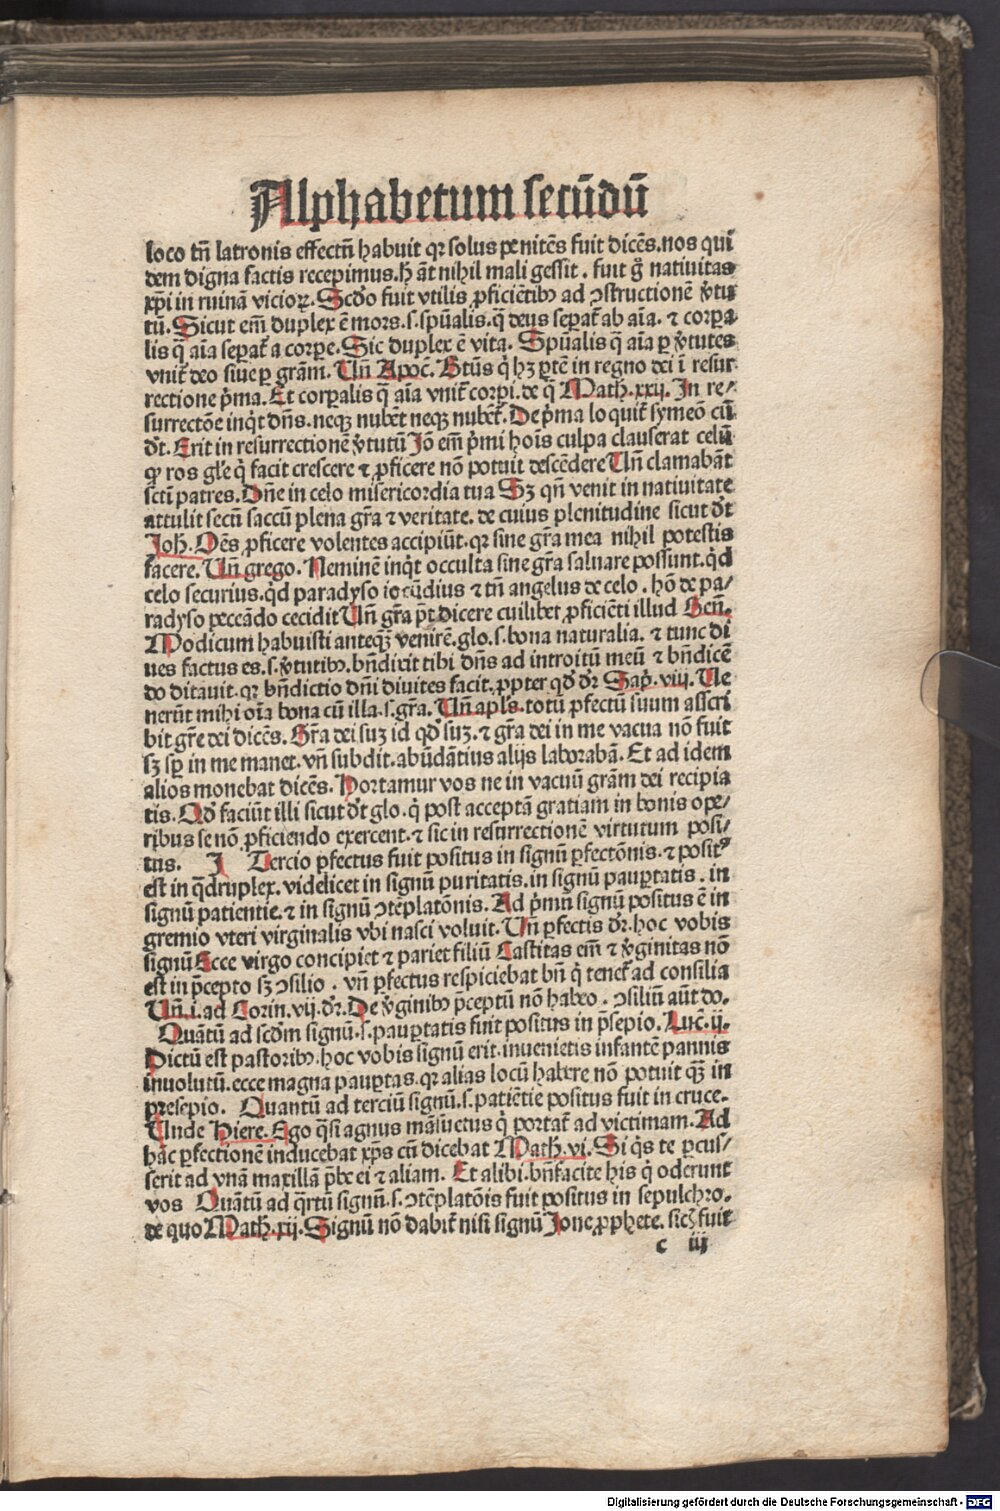 Alphabetum secūdū
loco tn̄ latronis effectū habuit qꝛ solus penitēs fuit dicēs. nos qui
dem digna factis recepimus. h̄ āt nihil mali gessit. fuit g̊ nativitas
xp̄i in ruinā vicioꝝ. Scd̄o fuit vtilis ꝓficiētibꝫ ad ↄstructionē v̓tu
tū. Sicut em̄ duplex ē mors. s. spūalis. q̄ deus sepat̄ ab aīa. ⁊ corꝑa
lis q̄ aīa sepat̄ a corꝑe. Sic duplex ē vita. Spūalis q̄ aīa ꝑ v̓tutes
vnit̄ deo siue ꝑ grām. Vn̄ Apoc̄. Btūs q̇ hꝫ ꝑtē in regno dei ī resur
rectione p̄ma. Et corꝑalis q̄ aīa vnit̄ corꝑi. de q̄ Math. xxij. In re⸗
surrectōe inq̇t dn̄s. neqꝫ nubēt neqꝫ nubēt̄. De p̄ma loquit̄ symeō cū
dr̄t. Erit in resurrectionē v̓tutū Jō em̄ p̄mi hoīs culpa clauserat celū
ꝙ ros gl̄e q̇ facit crescere ⁊ ꝓficere nō potuit descēdere Vn̄ clamabāt
scti patres. Dn̄e in celo misericordia tua Sꝫ qn̄ venit in nativitate
attulit sectū saccū plena gr̄a ⁊ veritate. de cuius plenitudine sicut dr̄t
Joh̄. Oēs ꝓficere volentes accipiūt. qꝛ sine gr̄a mea nihil potestis
facere. Vn̄ grego. Neminē inq̇t occulta sine gr̄a saluare possunt. q̇d
celo securius. q̇d paradyso iocūdius ⁊ tn̄ angelus de celo. hō de pa⸗
radyso peccādo cecidit Vn̄ gr̄a p̄t dicere cuilibet ꝓficiēti illud Gen̄.
Modicum habuisti anteqꝫ venirē. glo. s. bona naturalia. ⁊ tunc di
ues factus es. s. v̓tutibꝫ. bn̄dixit tibi dn̄s ad introitū meū ⁊ bn̄dicē
do ditauit. qꝛ bn̄dictio dn̄i divites facit. ꝓpter qd̄ dr̄ Sap̄. viij. Ve
nerūt mihi oīa bona cū illa. s. gr̄a. Vn̄ apl̄s. totū ꝑfectū suum asscri
bit gr̄e dei dicēs. Gr̄a dei suꝫ id qd̄ suꝫ. ⁊ gr̄a dei in me vacua nō fuit
sꝫ sp̄ in me manet. vn̄ subdit. abūdātius alijs laborabā. Et ad idem
alios monebat dicēs. Hortamur vos ne in vacuū grām dei recipia
tis. Qd̄ faciūt illi sicut dr̄t glo. q̇ post acceptā gratiam in bonis ope⸗
ribus se nō ꝓficiendo exercent. ⁊ sic in resurrectionē virtutum posi⸗
tus. J Tercio ꝑfectus fuit positus in signū ꝑfectōnis. ⁊ positꝰ
est in q̄druplex. videlicet in signū puritatis. in signū paupꝑtatis. in
signū patientie. ⁊ in signū ↄtēplatōnis. Ad p̄mū signū positus ē in
gremio vteri virginalis vbi nasci voluit. Vn̄ ꝑfectis dr̄. hoc vobis
signū Ecce virgo concipiet ⁊ pariet filiū Castitas em̄ ⁊ v̓ginitas nō
est in p̄cepto sꝫ ↄsilio. vn̄ ꝑfectus respiciebat bn̄ q̇ tenet̄ ad consilia
Vn̄. i. ad Corin. vij. dr̄. De v̓ginibꝫ p̄ceptū nō habeo. ↄsiliū aūt do.
Quātū ad scd̄m signū. s. pauꝑtatis fuit positus in p̄sepio. Luc̄. ij.
Dictū est pastoribꝫ. hoc vobis signū erit. inuenietis infantē pannis
inuolutū. ecce magna pauꝑtas. qꝛ alias locū habere nō potuit qꝫ in
presepio. Quantū ad terciū signū. s. patiētie positus fuit in cruce.
Vnde Hiere. Ego q̄si agnus māsuetus q̇ portat̄ ad victimam. Ad
hāc ꝑfectionē inducebat xp̄s cū dicebat Math. vi. Si q̇s te ꝑcus⸗
serit ad vnā maxillā p̄be ei ⁊ aliam. Et alibi. bn̄facite his q̇ oderunt
vos Quātū ad q̄rtū signū. s. ↄtēplatōis fuit positus in sepulchro.
de quo Math. xij. Signū nō dabit̄ nisi signū Jone ꝓphete. sicꝫ fuit
c iij
Digitalisierung gefördert durch die Deutsche Forschungsgemeinschaft - DFG